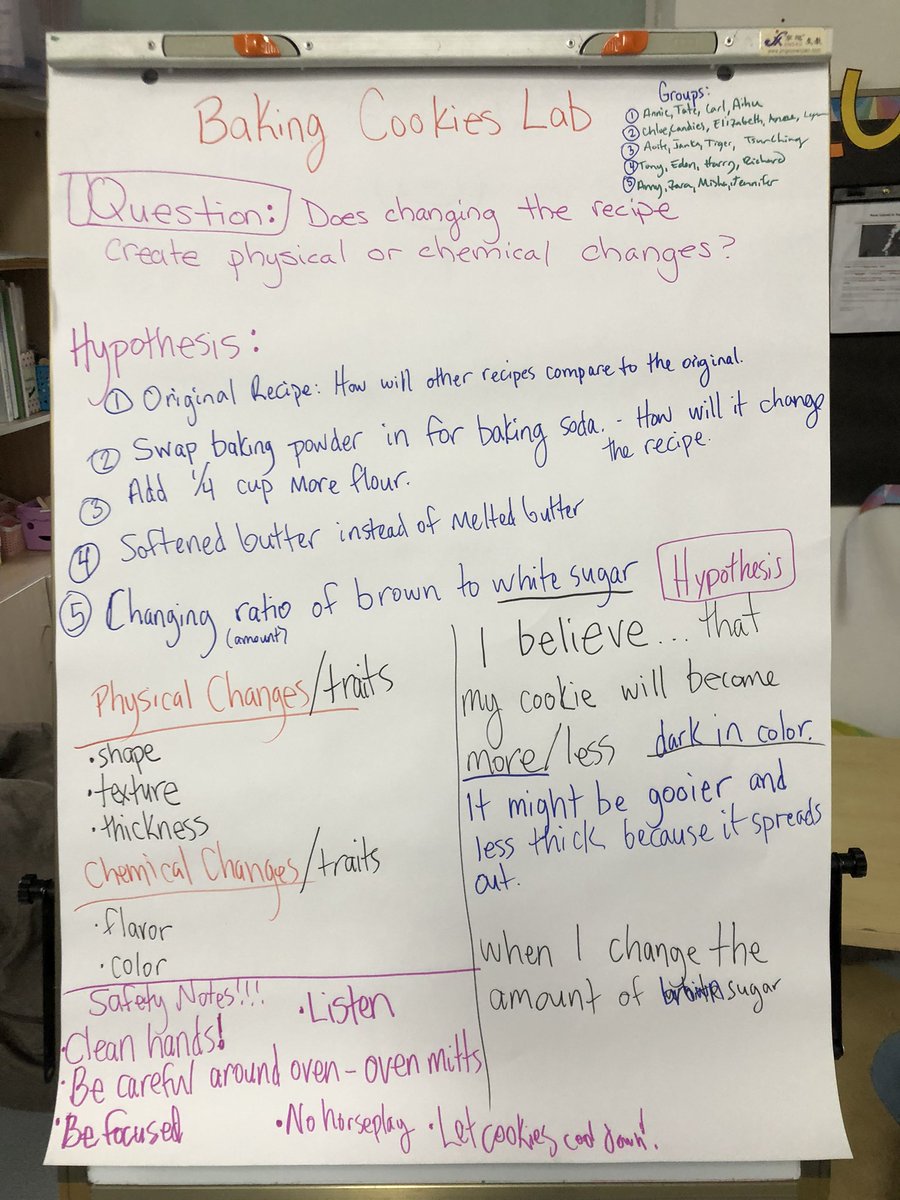 Baking Cookies Lab
Groups:
① Annie, Tate, Carl, Aihu
② Chloe, Candies, Elizabeth,
③ Tiger, Tsunching
④ Tony, Eden, Harry, Richard
⑤ Amy, Zara, Misha, Jennifer
Question: Does changing the recipe
create physical or chemical changes?
Hypothesis:
① Original Recipe: How will other recipes compare to the original.
② Swap baking powder in for baking soda. - How will it change
the recipe.
③ Add 1/4 cup more flour.
④ Softened butter instead of melted butter
⑤ Changing ratio of brown to white sugar
(amount)
Hypothesis
I believe... that
my cookie will become
more/less dark in color.
It might be gooier and
less thick because it spreads
out.
when I change the
amount of sugar
Physical Changes/traits
• shape
• texture
• thickness
Chemical Changes/traits
• flavor
• color
Safety Notes!!!
• Listen
• Clean hands!
• Be careful around oven - oven mitts
• Be focused
• No horseplay
• Let cookies cool down!